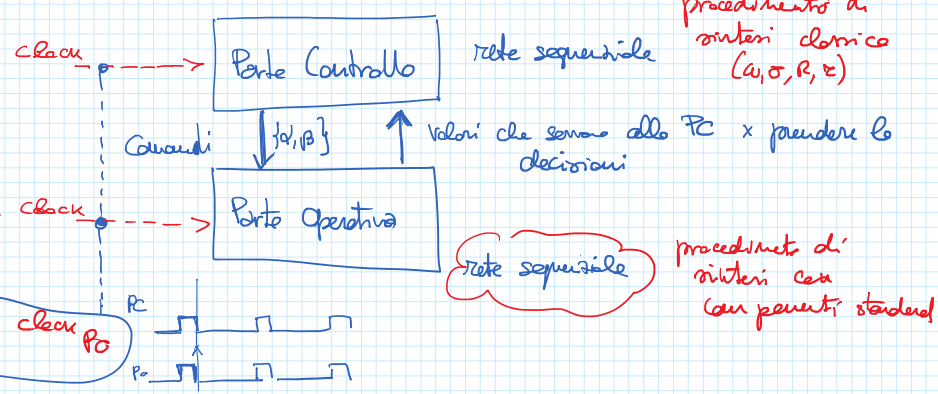 procedimento di
sintesi classica
(ω, σ, R, z)
clock
Parte Controllo
rete sequenziale
Comandi
{α, β}
Valori che servono alla PC x prendere le
decisioni
clock
Parte Operativa
rete sequenziale
procedimeto di
sintesi con
componenti standard
clock
PO
PC
Po